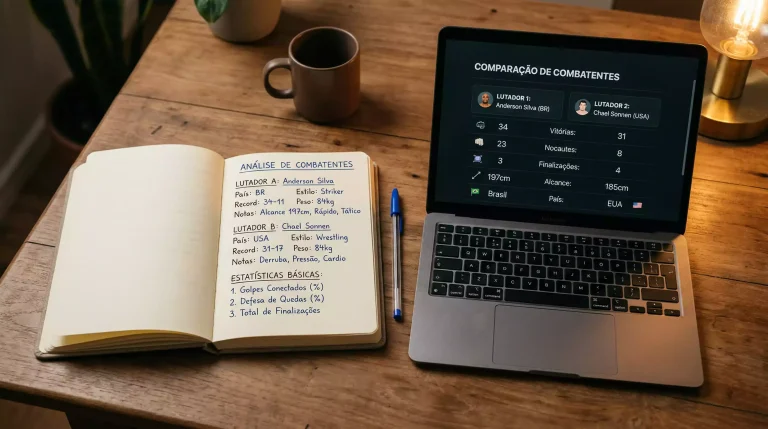 ANÁLISE DE COMBATENTES
LUTADOR A: Anderson Silva
País: BR Estilo: Striker
Record: 34-11 Peso: 84kg
Notas: Alcance 197cm, Rápido, Tático
LUTADOR B: Chael Sonnen
País: USA Estilo: Wrestling
Record: 31-17 Peso: 84kg
Notas: Derruba, Pressão, Cardio
ESTATÍSTICAS BÁSICAS:
1. Golpes Conectados (%)
2. Defesa de Quedas (%)
3. Total de Finalizações
COMPARAÇÃO DE COMBATENTES
LUTADOR 1:
Anderson Silva (BR)
LUTADOR 2:
Chael Sonnen (USA)
34 Vitórias: 31
23 Nocautes: 8
3 Finalizações: 4
197cm Alcance: 185cm
Brasil País: EUA